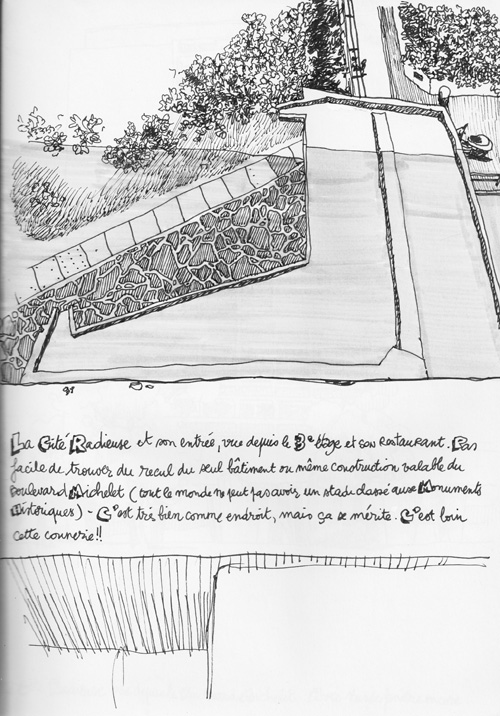 La Cité Radieuse et son entrée, vue depuis le 3e étage et son restaurant. Pas
facile de trouver du recul du seul bâtiment ou même construction valable du
Boulevard Michelet (tout le monde ne peut pas avoir un stade classé aux Monuments
Historiques) - C'est très bien comme endroit, mais ça se mérite. C'est loin
cette connerie!!